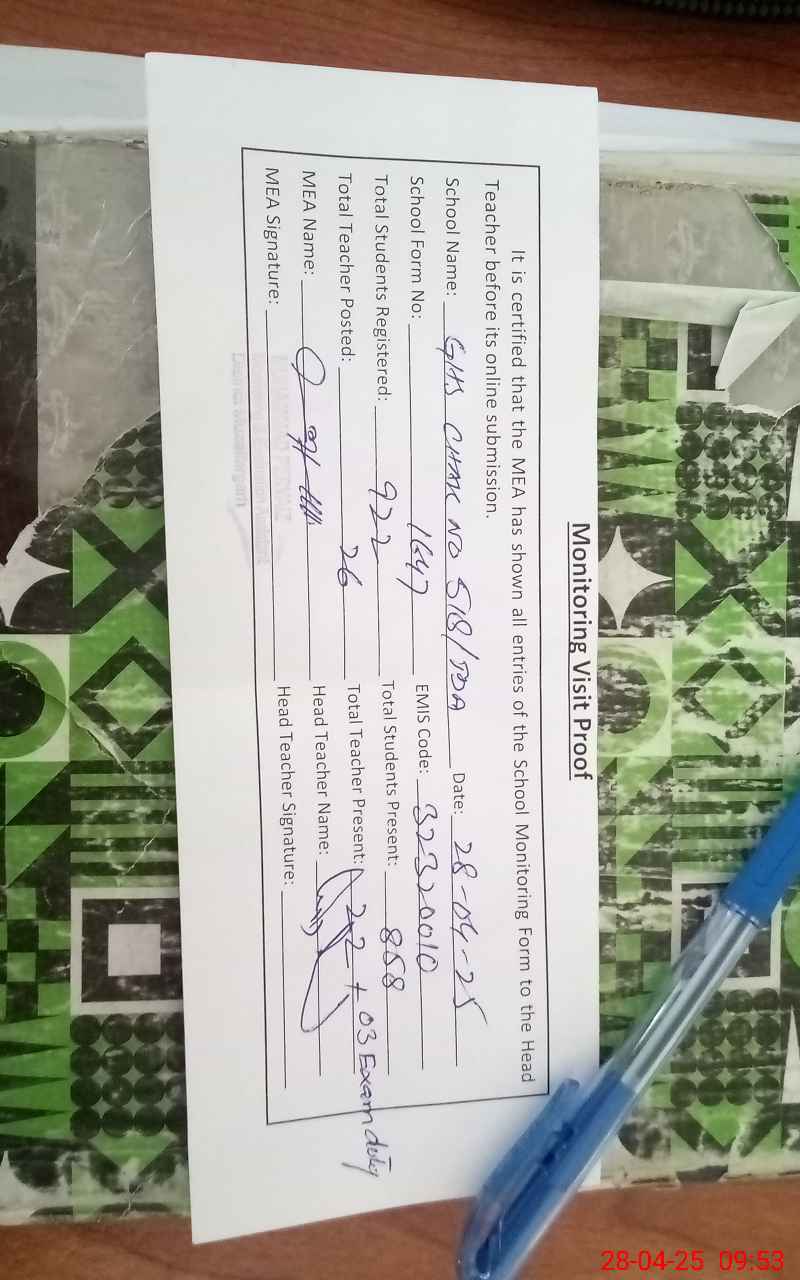 Monitoring Visit Proof
It is certified that the MEA has shown all entries of the School Monitoring Form to the Head
Teacher before its online submission.
School Name: GHS CHAK NO 518/TDA Date: 28-04-25
School Form No: 1647 EMIS Code: 32320010
Total Students Registered: 922 Total Students Present: 858
Total Teacher Posted: 26 Total Teacher Present: 22 + 03 Exam duty
MEA Name: Head Teacher Name:
MEA Signature: Head Teacher Signature:
28-04-25 09:53